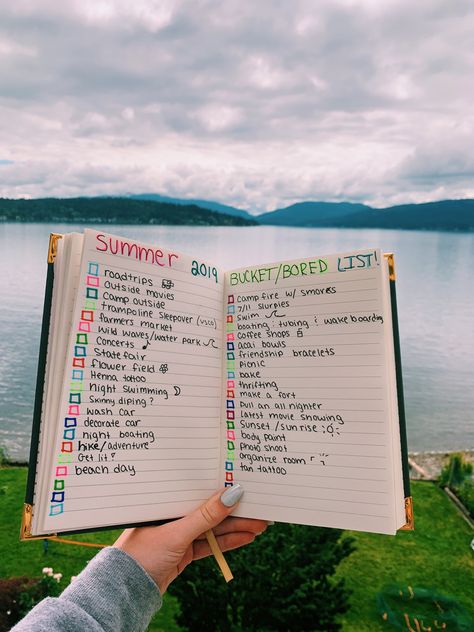 SUMMER 2019
roadtrips
Outside movies
Camp outside
trampoline sleepover (vsco)
farmers market
Wild waves/water park
Concerts
State fair
flower field
Henna tattoo
Night Swimming
Skinny dipping?
wash car
decorate car
night boating
hike/adventure
Get lit?
beach day
BUCKET/BORED LIST!
Camp fire w/ smores
7/11 Slurpies
Swim
boating : tubing : wake boarding
Coffee shops
acai bowls
friendship bracelets
picnic
bake
thrifting
make a fort
Pull an all nighter
Latest movie showing
Sunset/sunrise
body paint
photo shoot
organize room
tan tattoo